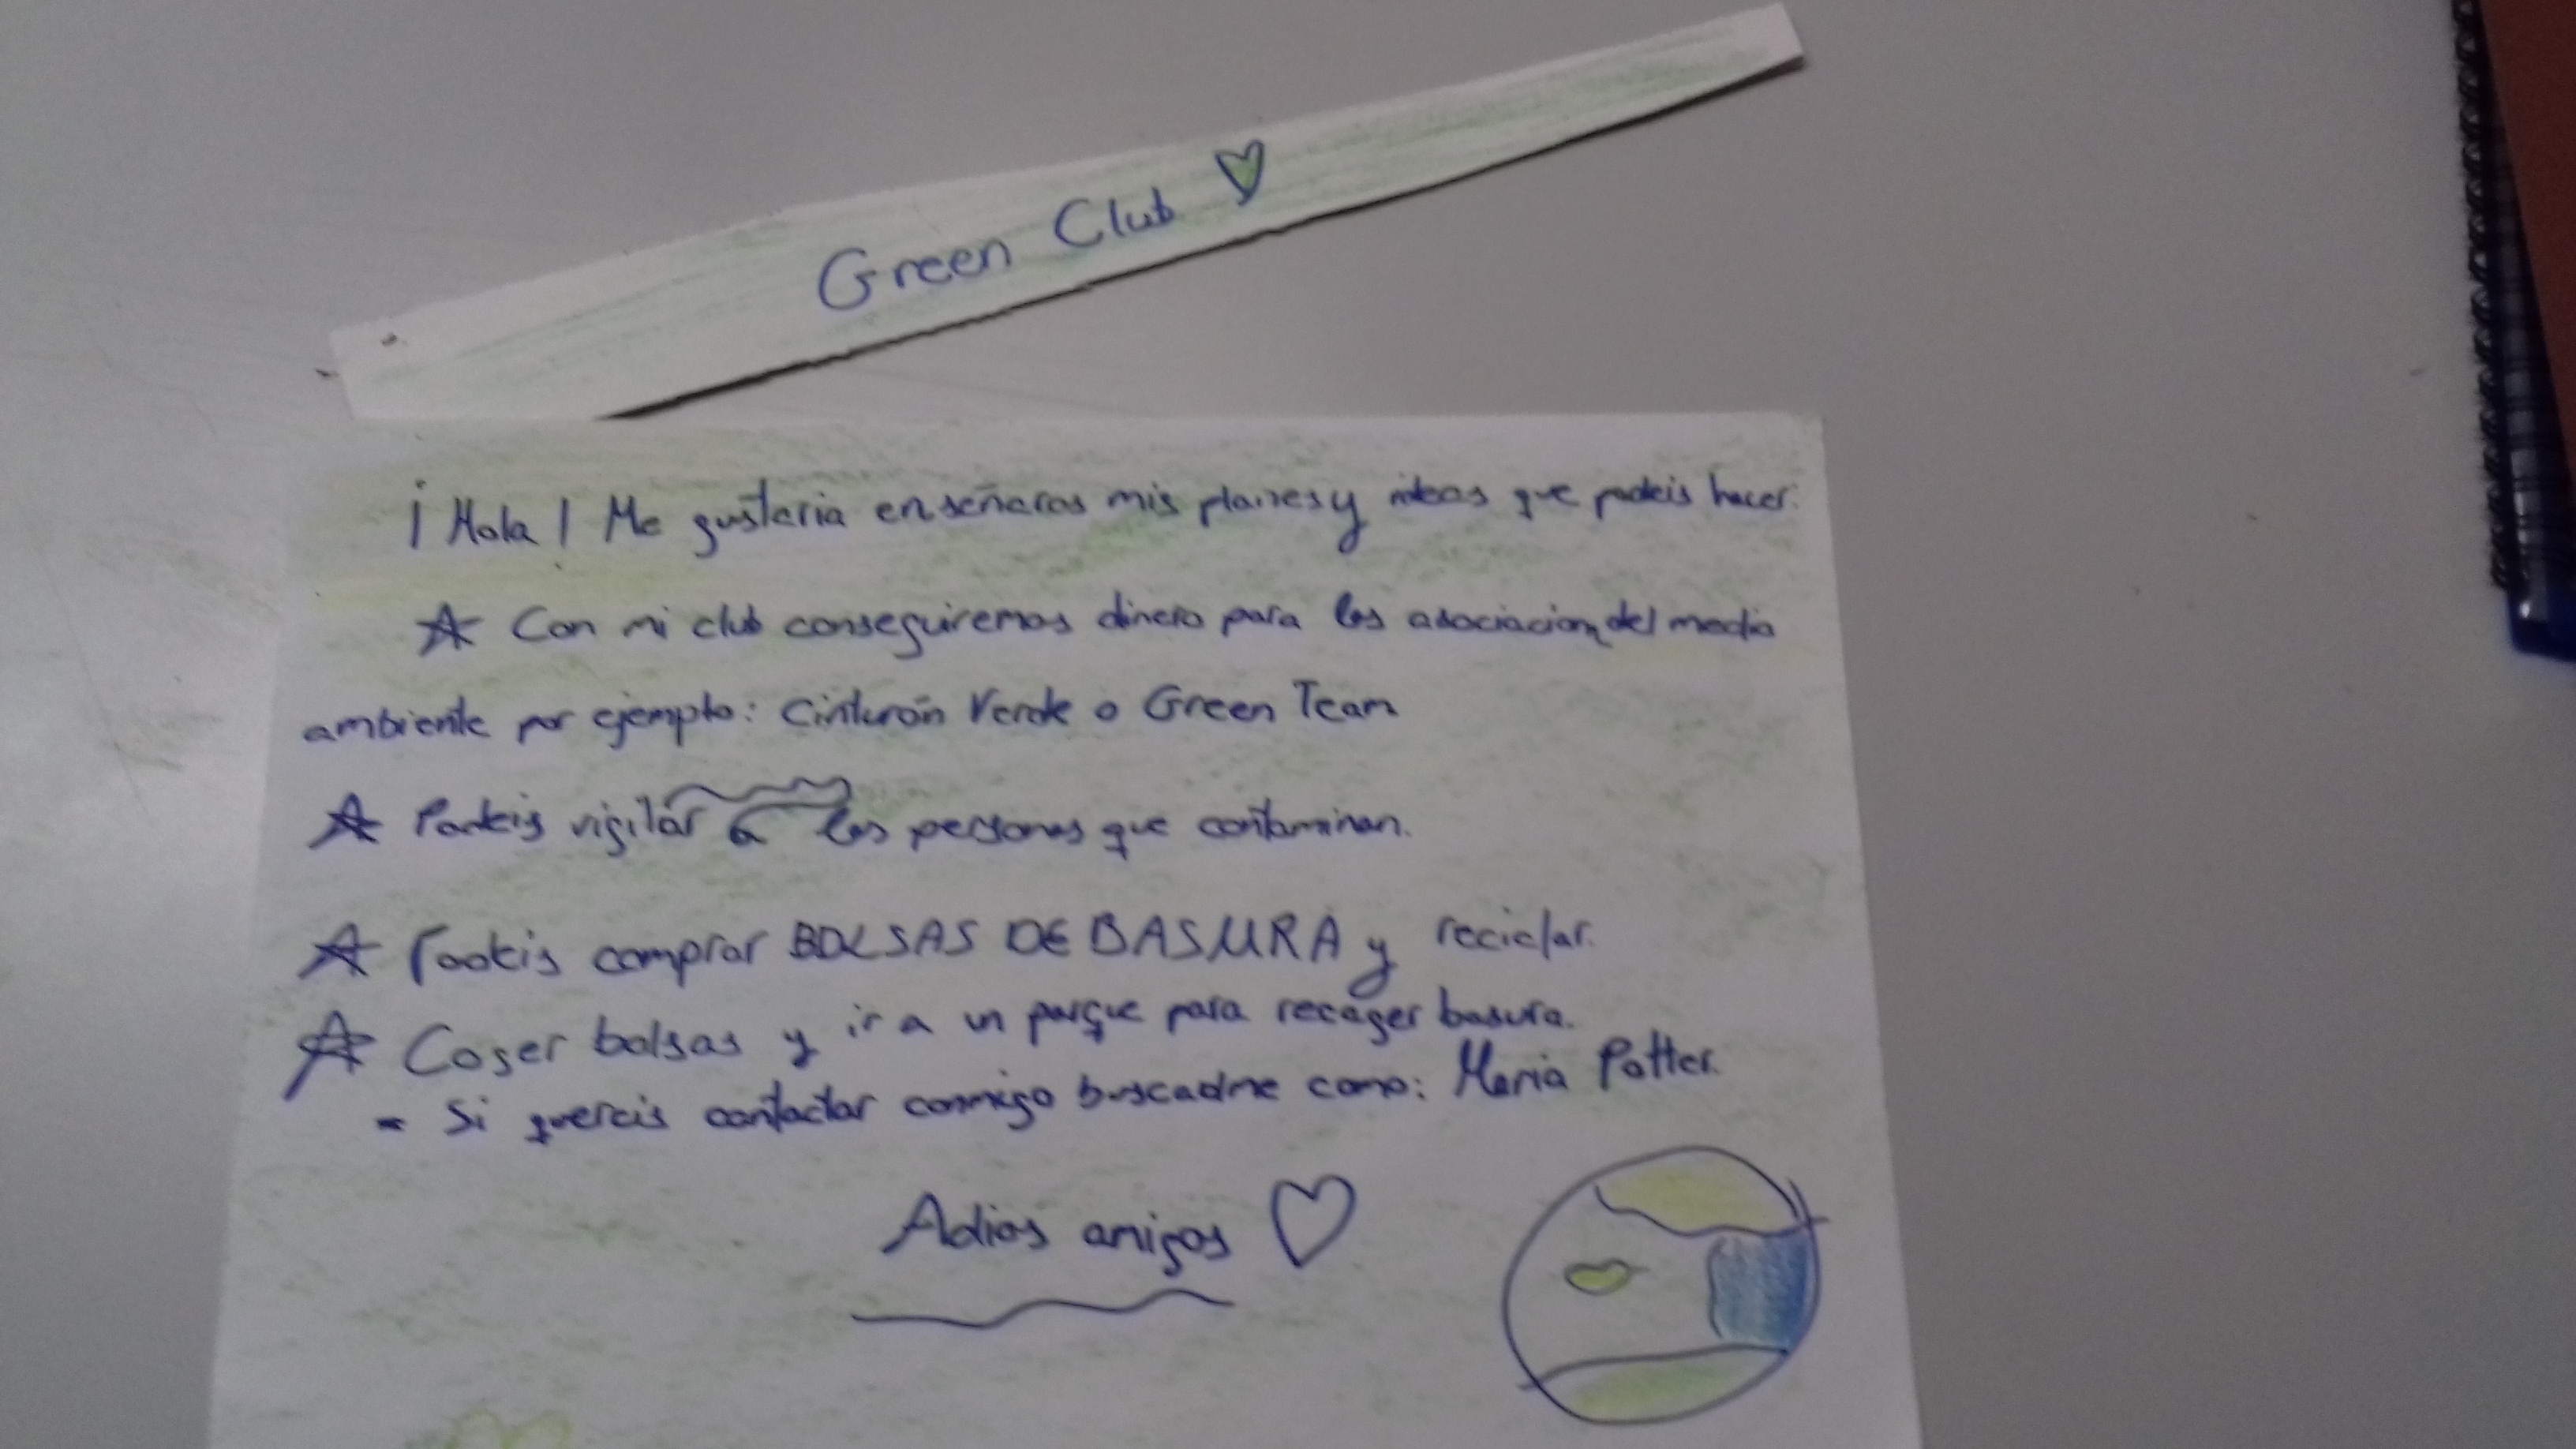 Green Club
¡Hola! Me gustaria enseñaros mis planes y ideas que podeis hacer.
Con mi club conseguiremos dinero para las asociacion del medio
ambiente por ejemplo: Cinturón Verde o Green Team
Podeis vigilar a las personas que contaminan.
Podeis comprar BOLSAS DE BASURA y reciclar.
Coser bolsas y ir a un parque para recoger basura.
- Si quereis contactar conmigo buscadme como: Maria Potter.
Adios amigos